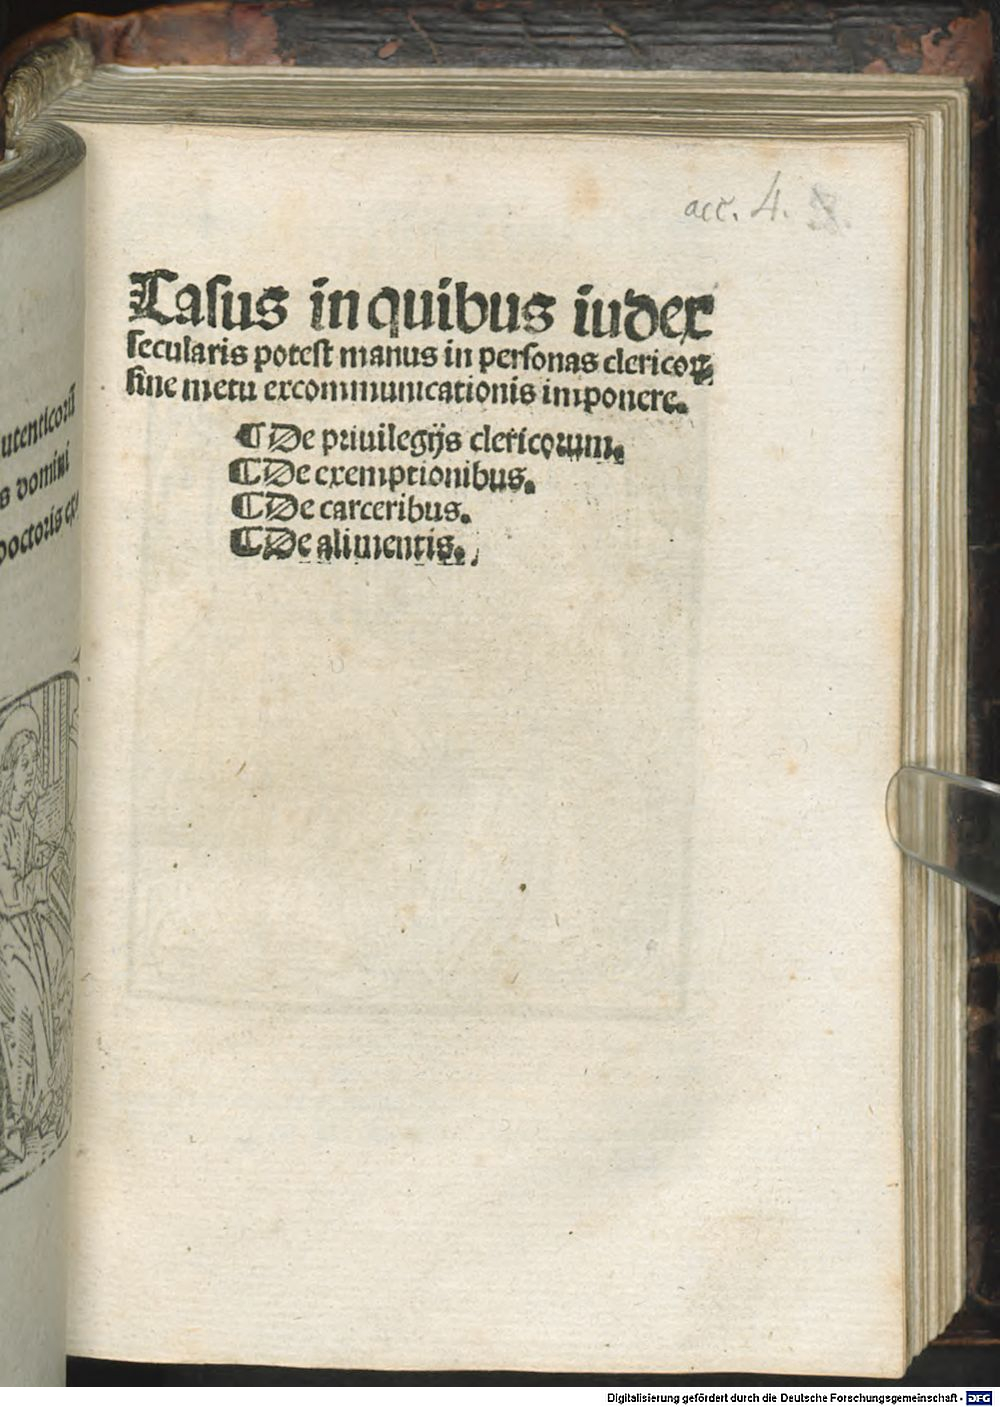 acc. 4.
Casus in quibus iudex
ſecularis poteſt manus in perſonas clericoꝝ
ſine metu excommunicationis imponere.
¶ De priuilegijs clericorum.
¶ De exemptionibus.
¶ De carceribus.
¶ De alimentis.
utenticorū
s domini
doctoris ex
Digitalisierung gefördert durch die Deutsche Forschungsgemeinschaft - DFG